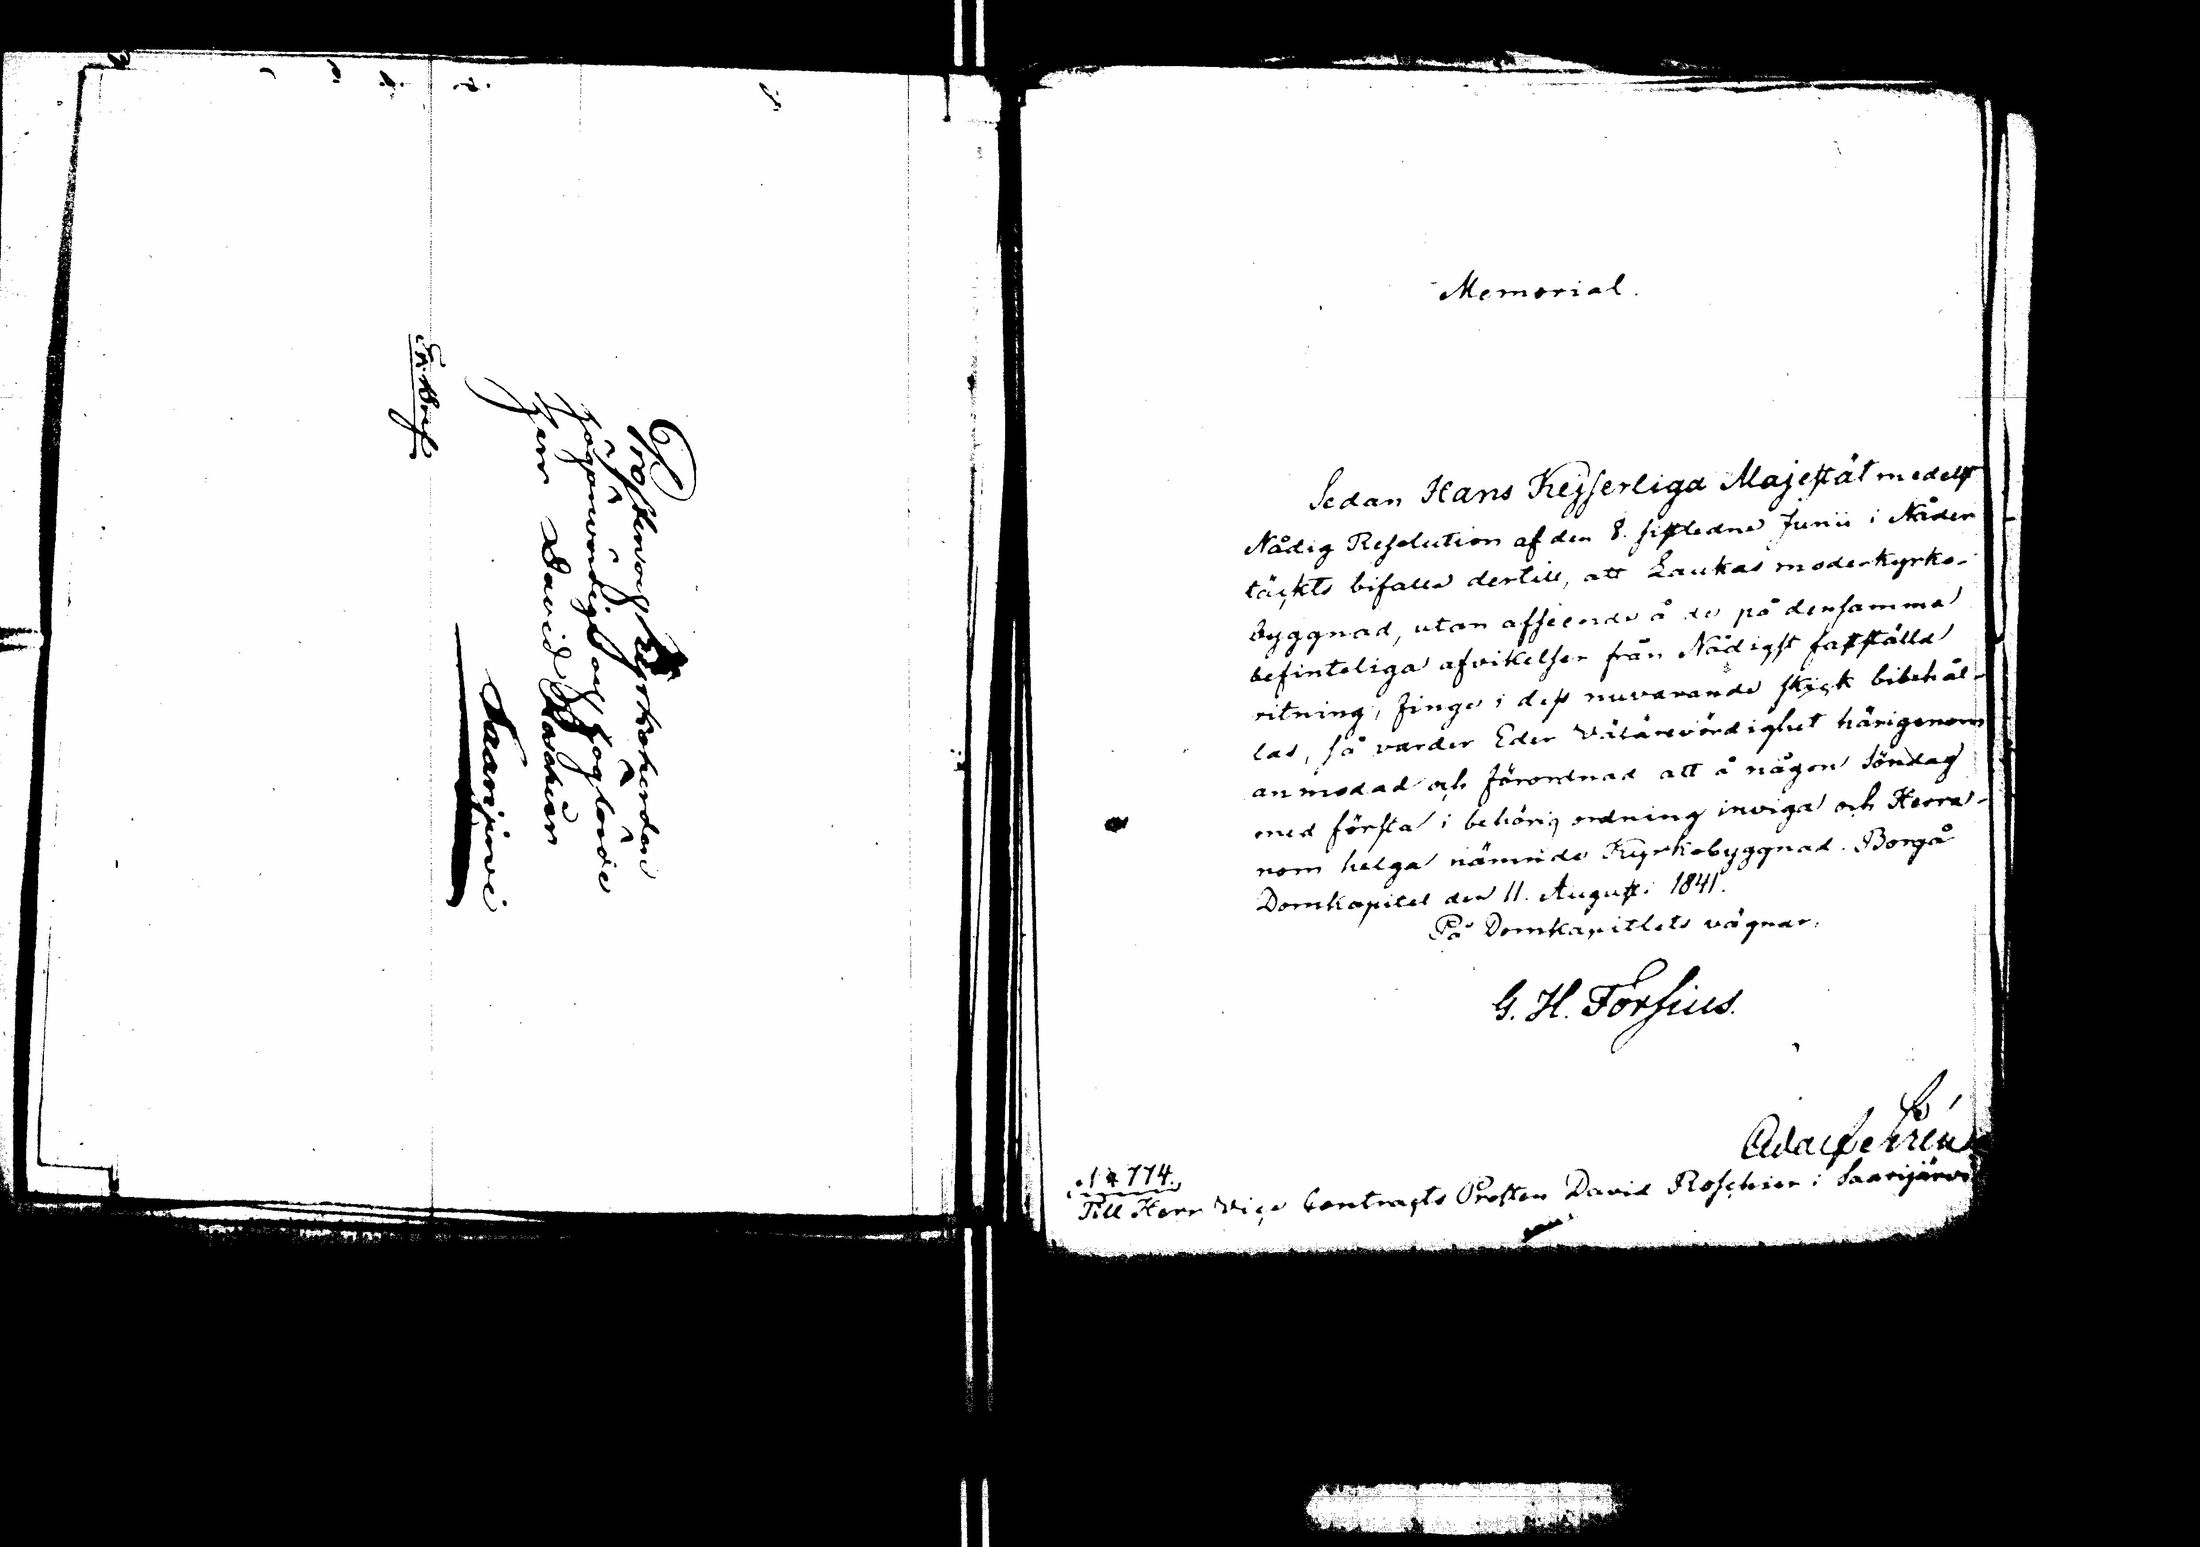 Prosten och Kyrkoherden
Högvördige och Höglärde
Herr David Roschier
Saarijärvi
Ek. Bref
Memorial.
Sedan Hans Kejserliga Majestät medelst
Nådig Resolution af den 8. sistledne Junii i Nåder
täckts bifalla dertill, att Laukas moderkyrko-
byggnad, utan afseende å de på densamma
befinteliga afvikelser från Nådigst fastställd
ritning, finge i dess nuvarande skick bibehål-
las, så varder Eder Välärevördighet härigenom
anmodad och förordnad att å någon Söndag
med första i behörig ordning inviga och Herra-
nom helga nämnde Kyrkobyggnad. Borgå
Domkapitel den 11. Augusti 1841.
På Domkapitlets vägnar.
G. H. Forsius.
№ 774.
Till Herr Vice Contracts Prosten David Roschier i Saarijärvi